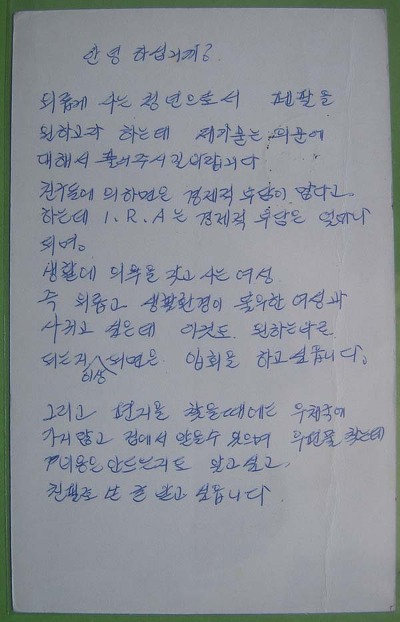 안녕 하십니까?
외롭게 사는 청년으로서 펜팔을
원하고자 하는데 제가묻는 의문에
대해서 풀어주시길바랍니다
친구들에 의하면은 경제적 부담이 많다고
하는데 I.R.A는 경제적 부담은 얼마나
되며.
생활에 의욕을 갖고 사는 여성
즉 외롭고 생활환경이 불우한 여성과
사귀고 싶은데 이것도 원하는대로
되는지 되면은 입회를 하고싶읍니다.
이상
그리고 편지를 찾을때에는 우체국에
가지않고 집에서 받을수 있으며 우편물 찾는데
비용은 안드는지도 알고 싶고.
친필로 난 알고 싶읍니다